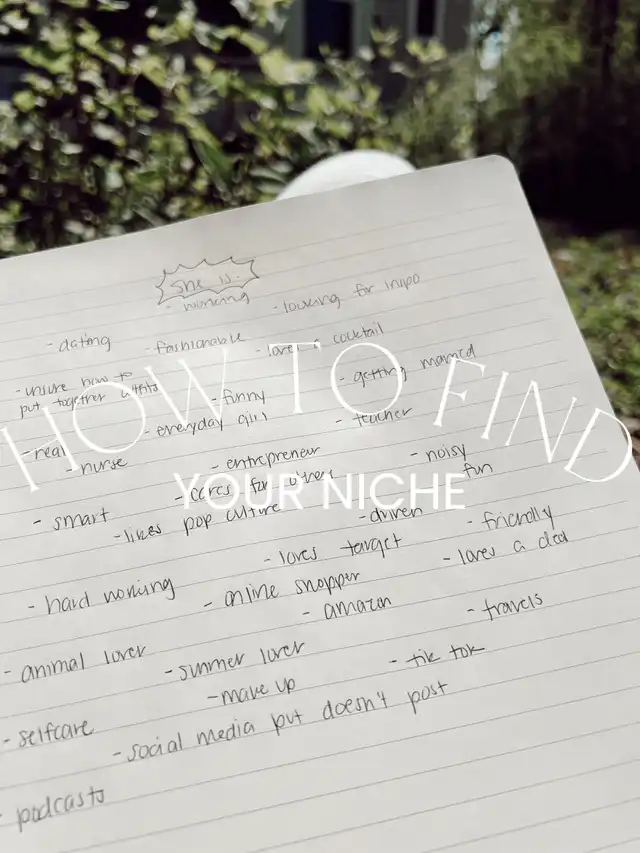 she is..
- working - looking for inspo
- dating - fashionable - loves a cocktail
- unsure how to
put together outfits - funny - getting married
HOW TO FIND
- real - everyday girl - teacher
- nurse - entrepreneur - noisy
YOUR NICHE
- cares for others fun
- smart - likes pop culture - driven - friendly
- loves target - loves a deal
- hard working - online shopper
- amazon - travels
- animal lover - summer lover - tik tok
- make up
- selfcare
- social media but doesn't post
- podcasts